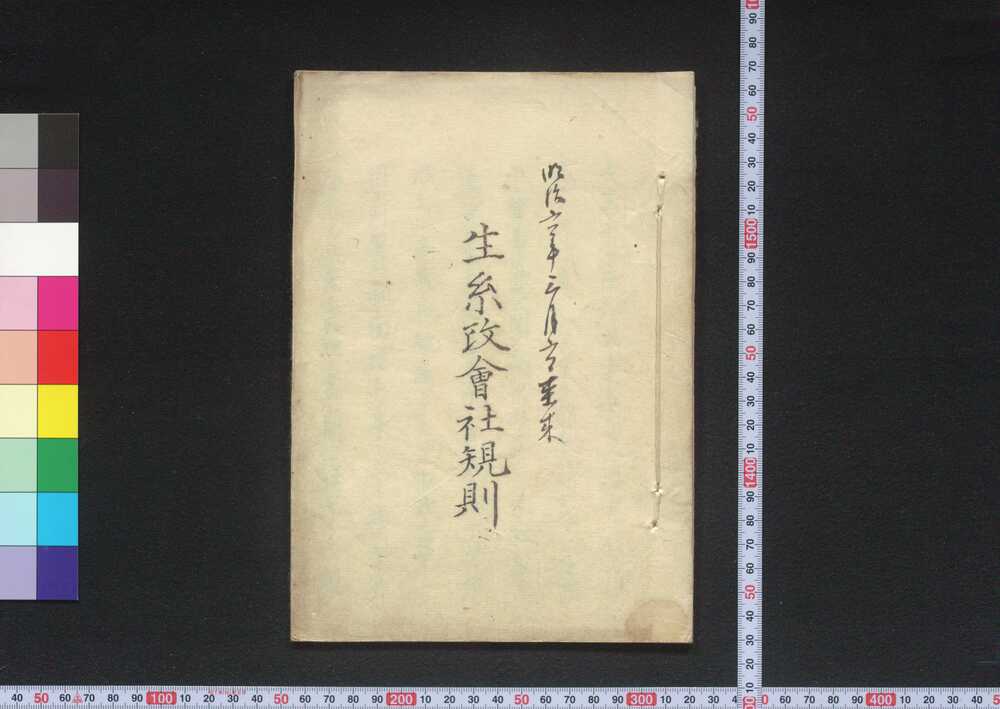 明治六年三月六日重来
生糸改會社規則